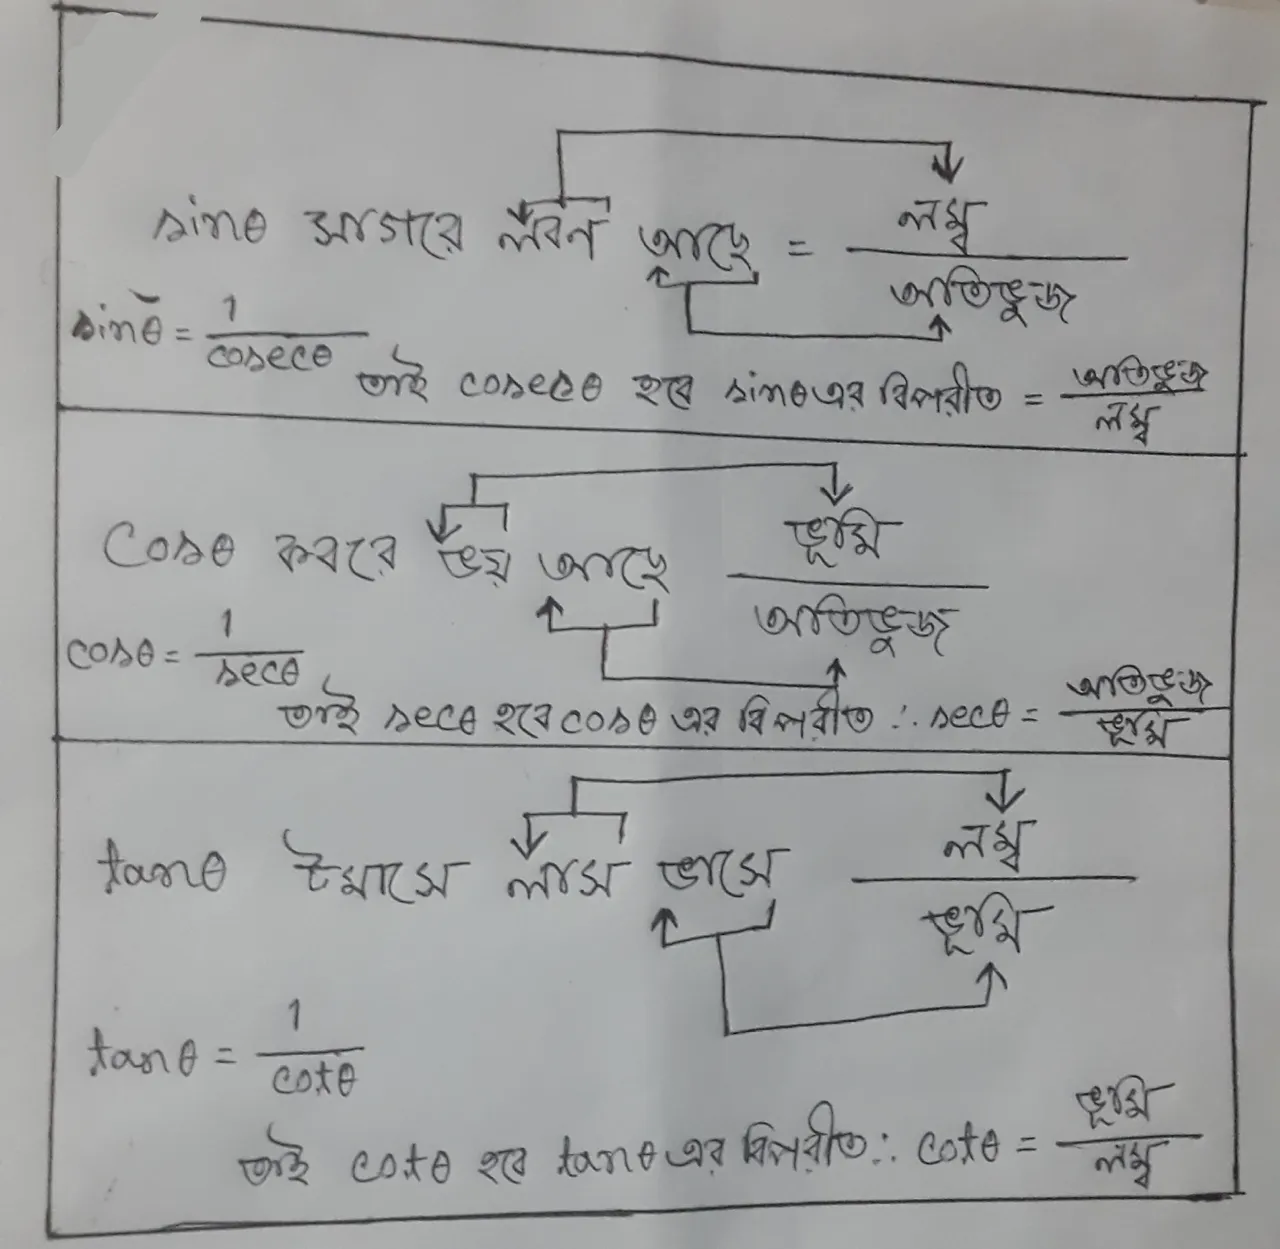 sinθ সাগরে লবন আছে = লম্ব / অতিভুজ
sinθ = 1 / cosecθ
তাই cosecθ হবে sinθ এর বিপরীত = অতিভুজ / লম্ব
Cosθ কবরে ভয় আছে ভূমি / অতিভুজ
cosθ = 1 / secθ
তাই secθ হবে cosθ এর বিপরীত ∴ secθ = অতিভুজ / ভূমি
tanθ ট্যমাসে লাস ভাসে লম্ব / ভূমি
tanθ = 1 / cotθ
তাই cotθ হবে tanθ এর বিপরীত ∴ cotθ = ভূমি / লম্ব